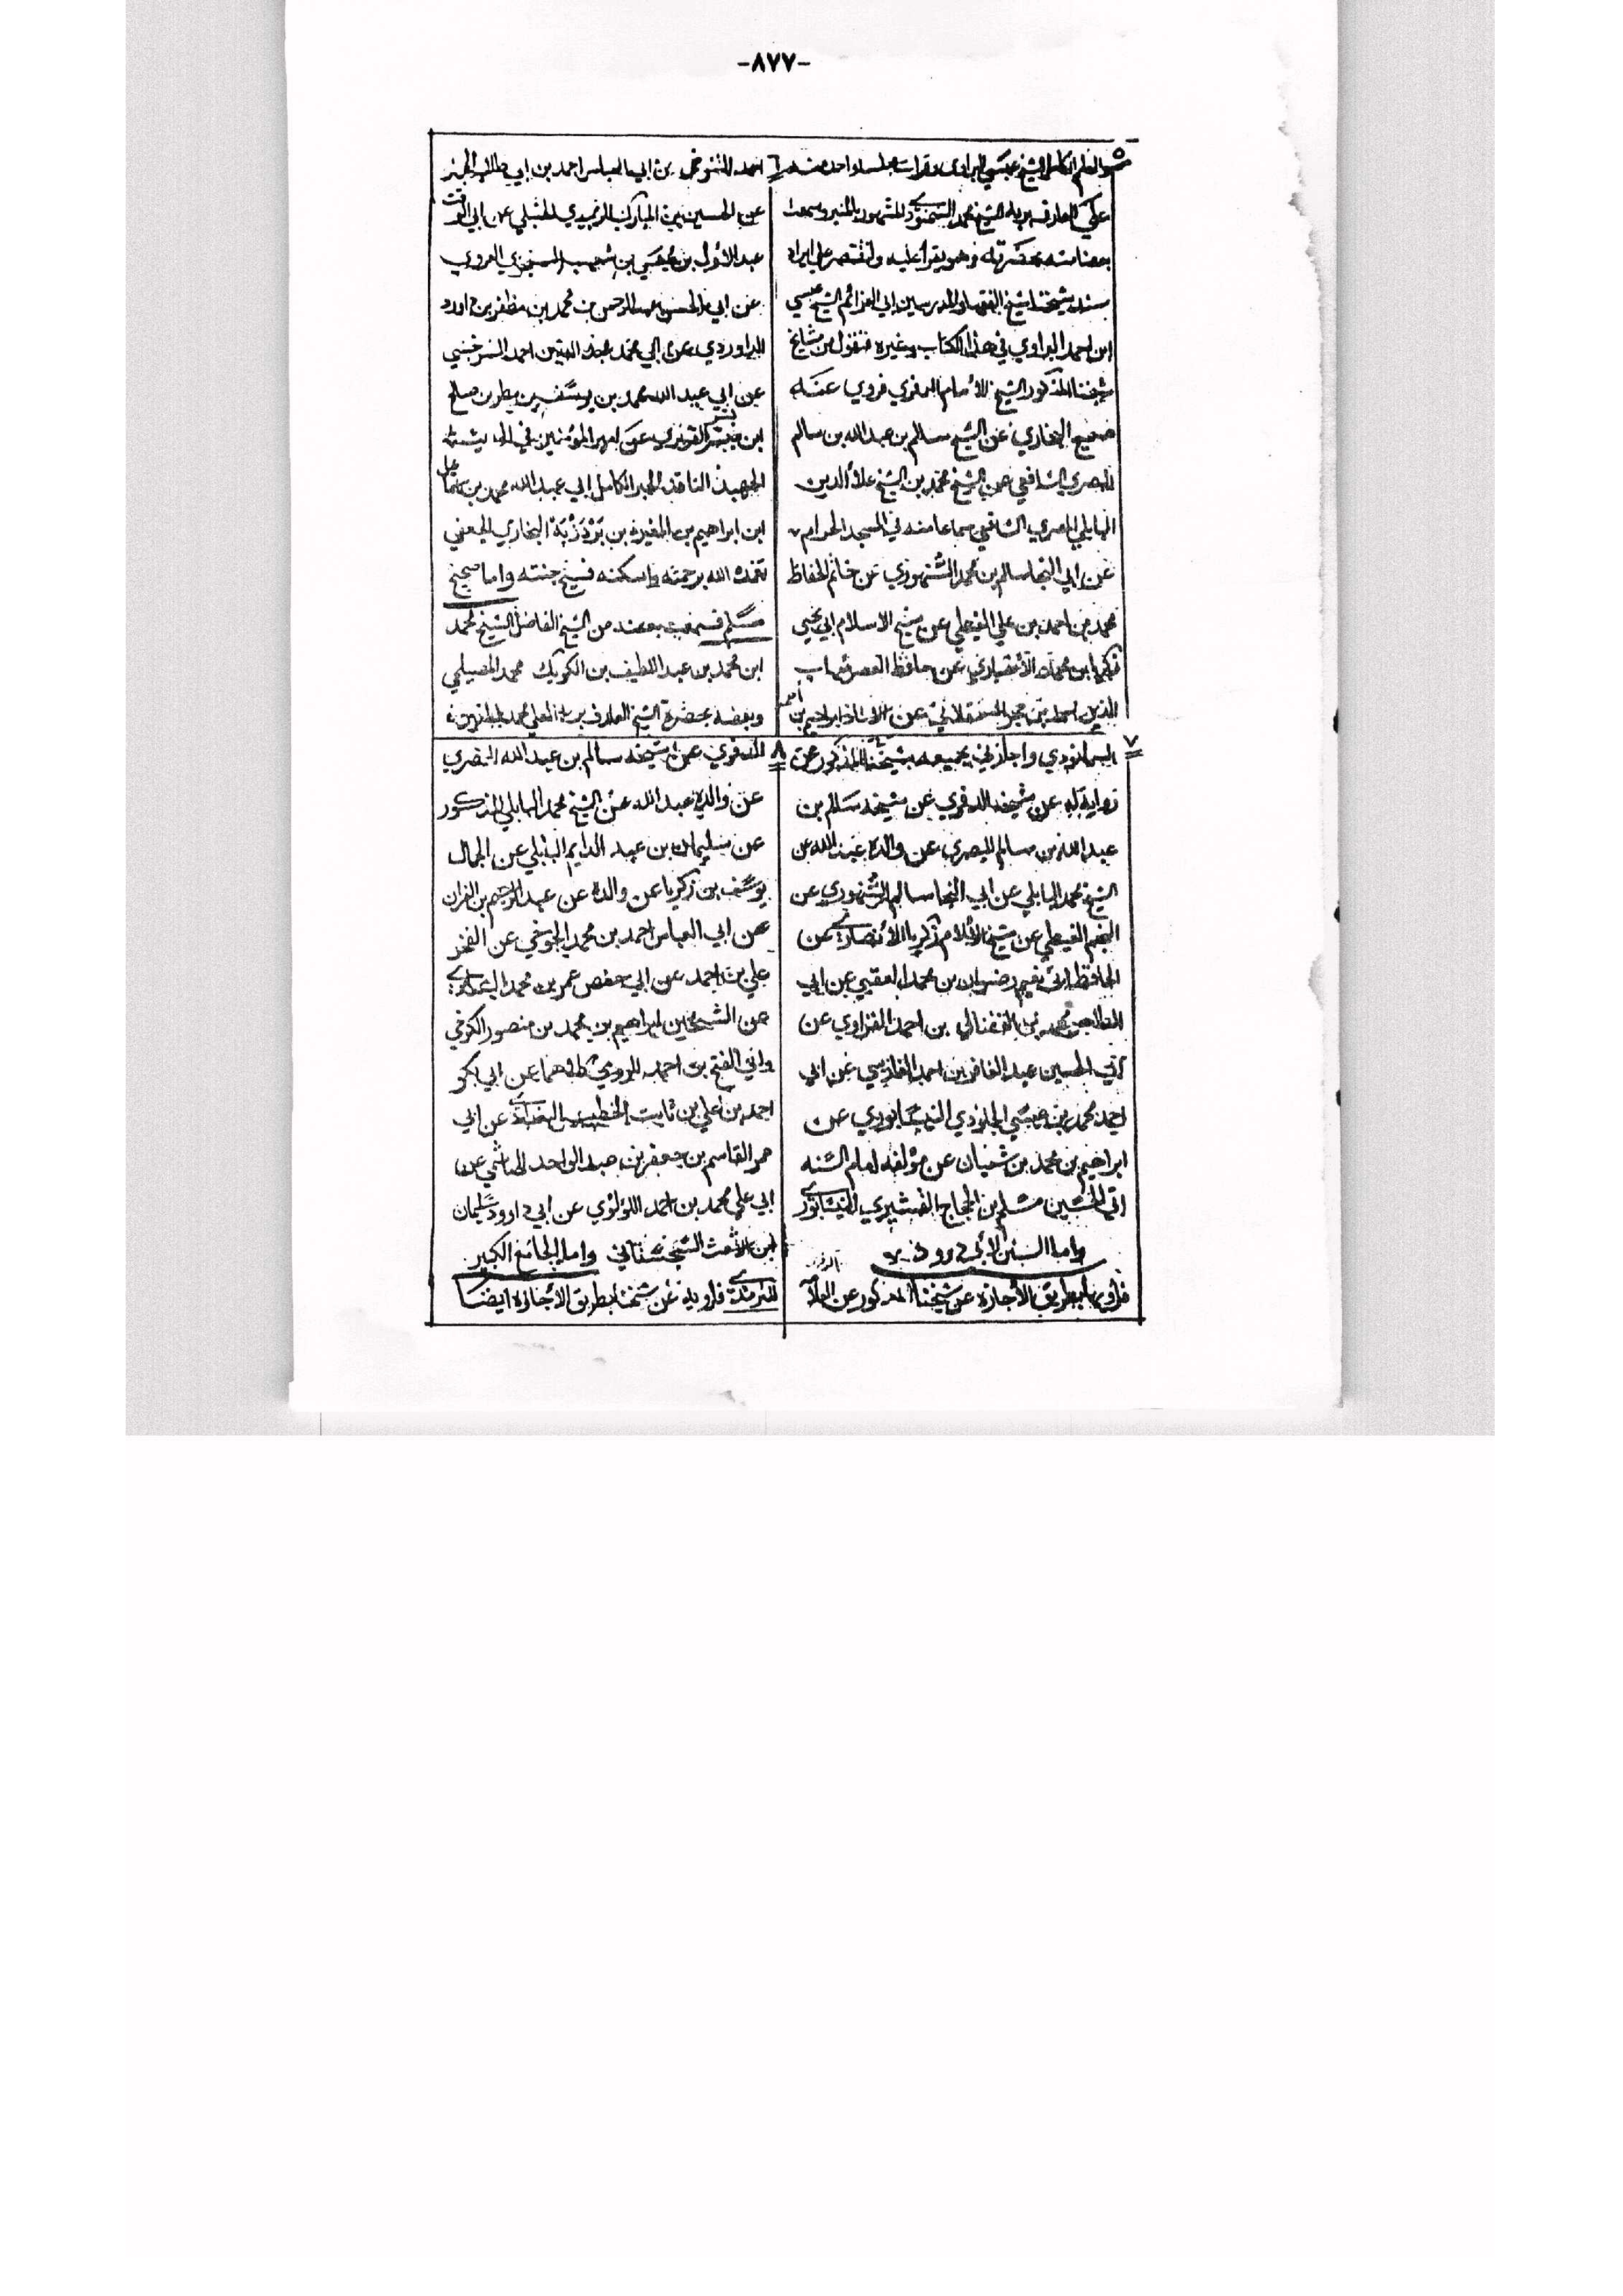 -٨٧٧-
٥
الشيخ عيسى البراوي وقرات
علي العارف بربه الشيخ محمد السمنودي المشهور بالمنير وسمعت
بعضا منه بحضرته وهو يقرأ عليه ولنقتصر على ايراد
سند شيخنا شيخ الفقها والمدرسين ابي العزائم الشيخ عيسى
ابن احمد البراوي في هذا الكتاب وغيره فنقول من مشايخ
شيخنا المذكور الشيخ الامام الدفري فروي عنه
صحيح البخاري عن الشيخ سالم بن عبد الله بن سالم
البصري الشافعي عن الشيخ محمد بن الشيخ علاء الدين
البابلي المصري الشافعي سماعا منه في المسجد الحرام
عن ابي النجا سالم بن محمد السنهوري عن خاتم الحفاظ
محمد بن احمد بن علي الغيطي عن شيخ الاسلام ابي يحيى
زكريا بن محمد الانصاري عن حافظ العصر شهاب
الدين احمد بن حجر العسقلاني عن الاستاذ ابراهيم بن
٦
احمد التنوخي عن ابي العباس احمد بن ابي طالب الحجار
عن الحسين بن المبارك الزبيدي الحنبلي عن ابي الوقت
عبد الاول بن عيسى بن شعيب السجزي الهروي
عن ابي الحسن عبد الرحمن بن محمد بن مظفر بن داود
الداوردي عن ابي محمد عبد الله بن احمد السرخسي
عن ابي عبد الله محمد بن يوسف بن مطر بن صالح
ابن بشر الفربري عن امير المؤمنين في الحديث
الجهبذ الناقد الحبر الكامل ابي عبد الله محمد بن اسماعيل
ابن ابراهيم بن المغيرة بن بَرْدَزْبَة البخاري الجعفي
تغمده الله برحمته واسكنه فسيح جنته واما صحيح
مسلم فسمعت بعضه من الشيخ الفاضل الشيخ محمد
ابن محمد بن عبد اللطيف بن الكويك محمد المصيلحي
وبعضه بحضرة الشيخ العارف بربه العلي محمد المنير
٧
السمنودي واجازني بجميعه شيخنا المذكور عن
روايته له عن شيخه الدفري عن شيخه سالم بن
عبد الله بن سالم البصري عن والده عبد الله عن
الشيخ محمد البابلي عن ابي النجا سالم السنهوري عن
النجم الغيطي عن شيخ الاسلام زكريا الانصاري عن
الحافظ ابي نعيم رضوان بن محمد العقبي عن ابي
الطاهر محمد بن احمد الفزاوي عن
ابي الحسين عبد الغافر بن احمد الفارسي عن ابي
احمد محمد بن عيسى الجلودي النيسابوري عن
ابراهيم بن محمد بن سفيان عن مؤلفه امام السنه
ابي الحسين مسلم بن الحجاج القشيري النيسابوري
واما السنن لابي داود
فارويها بطريق الاجازة عن شيخنا المذكور عن
٨
الدفري عن شيخه سالم بن عبد الله البصري
عن والده عبد الله عن الشيخ محمد البابلي المذكور
عن سليمان بن عبد الدايم البابلي عن الجمال
يوسف بن زكريا عن والده عن عبد الرحيم بن الفرات
عن ابي العباس احمد بن محمد الجوخي عن الفخر
علي بن احمد عن ابي حفص عمر بن محمد البغدادي
عن الشيخين ابراهيم بن محمد بن منصور الكرخي
وابي الفتح بن احمد الدومي كلاهما عن ابي بكر
احمد بن علي بن ثابت الخطيب البغدادي عن ابي
عمر القاسم بن جعفر بن عبد الواحد الهاشمي عن
ابي علي محمد بن احمد اللؤلؤي عن ابي داود سليمان
ابن الاشعث السجستاني واما الجامع الكبير
للترمذي فارويه عن شيخنا بطريق الاجازة ايضا